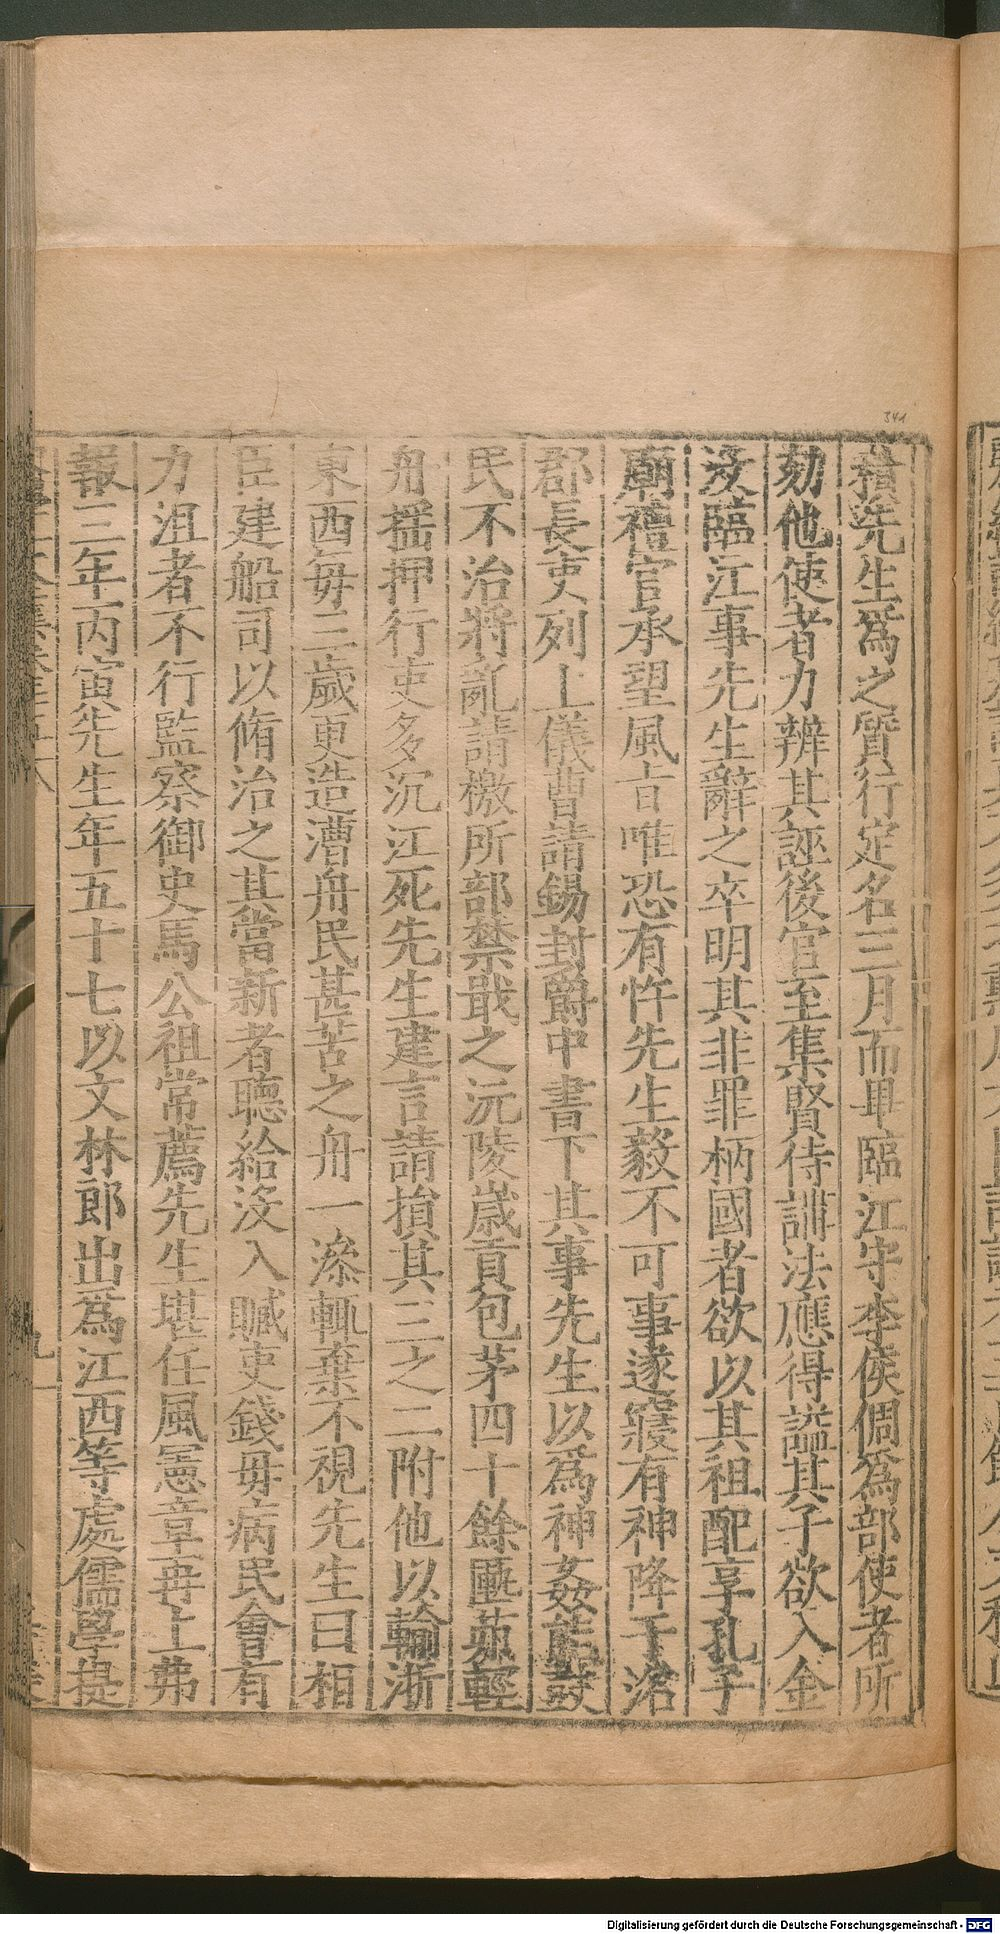 積先生爲之質行定名三月而畢臨江守李侯倜爲部使者所
劾他使者力辨其誣後官至集賢侍講法應得謚其子欲入金
没臨江事先生辭之卒明其非罪柄國者欲以其祖配享孔子
廟禮官承望風旨唯恐有忤先生毅不可事遂寢有神降于滄
郡長吏列上儀曹請錫封爵中書下其事先生以爲神姦能鼓
民不治將亂請檄所部禁戢之沅陵歲貢包茅四十餘匭茹輕
舟揺押行吏多沉江死先生建言請損其三之二附他以輸淛
東西毎三歲更造漕舟民甚苦之舟一漆輒棄不視先生曰相
臣建船司以脩治之其當新者聽給没入贓吏錢毋病民會有
力沮者不行監察御史馬公祖常薦先生堪任風憲章再上弗
報三年丙寅先生年五十七以文林郎出爲江西等處儒學提
九
341
Digitalisierung gefördert durch die Deutsche Forschungsgemeinschaft - DFG